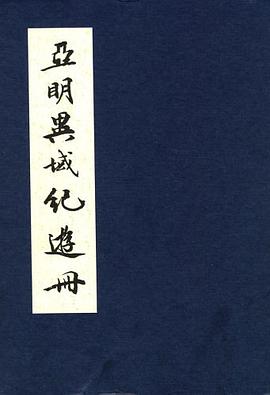 亞明異域紀遊冊